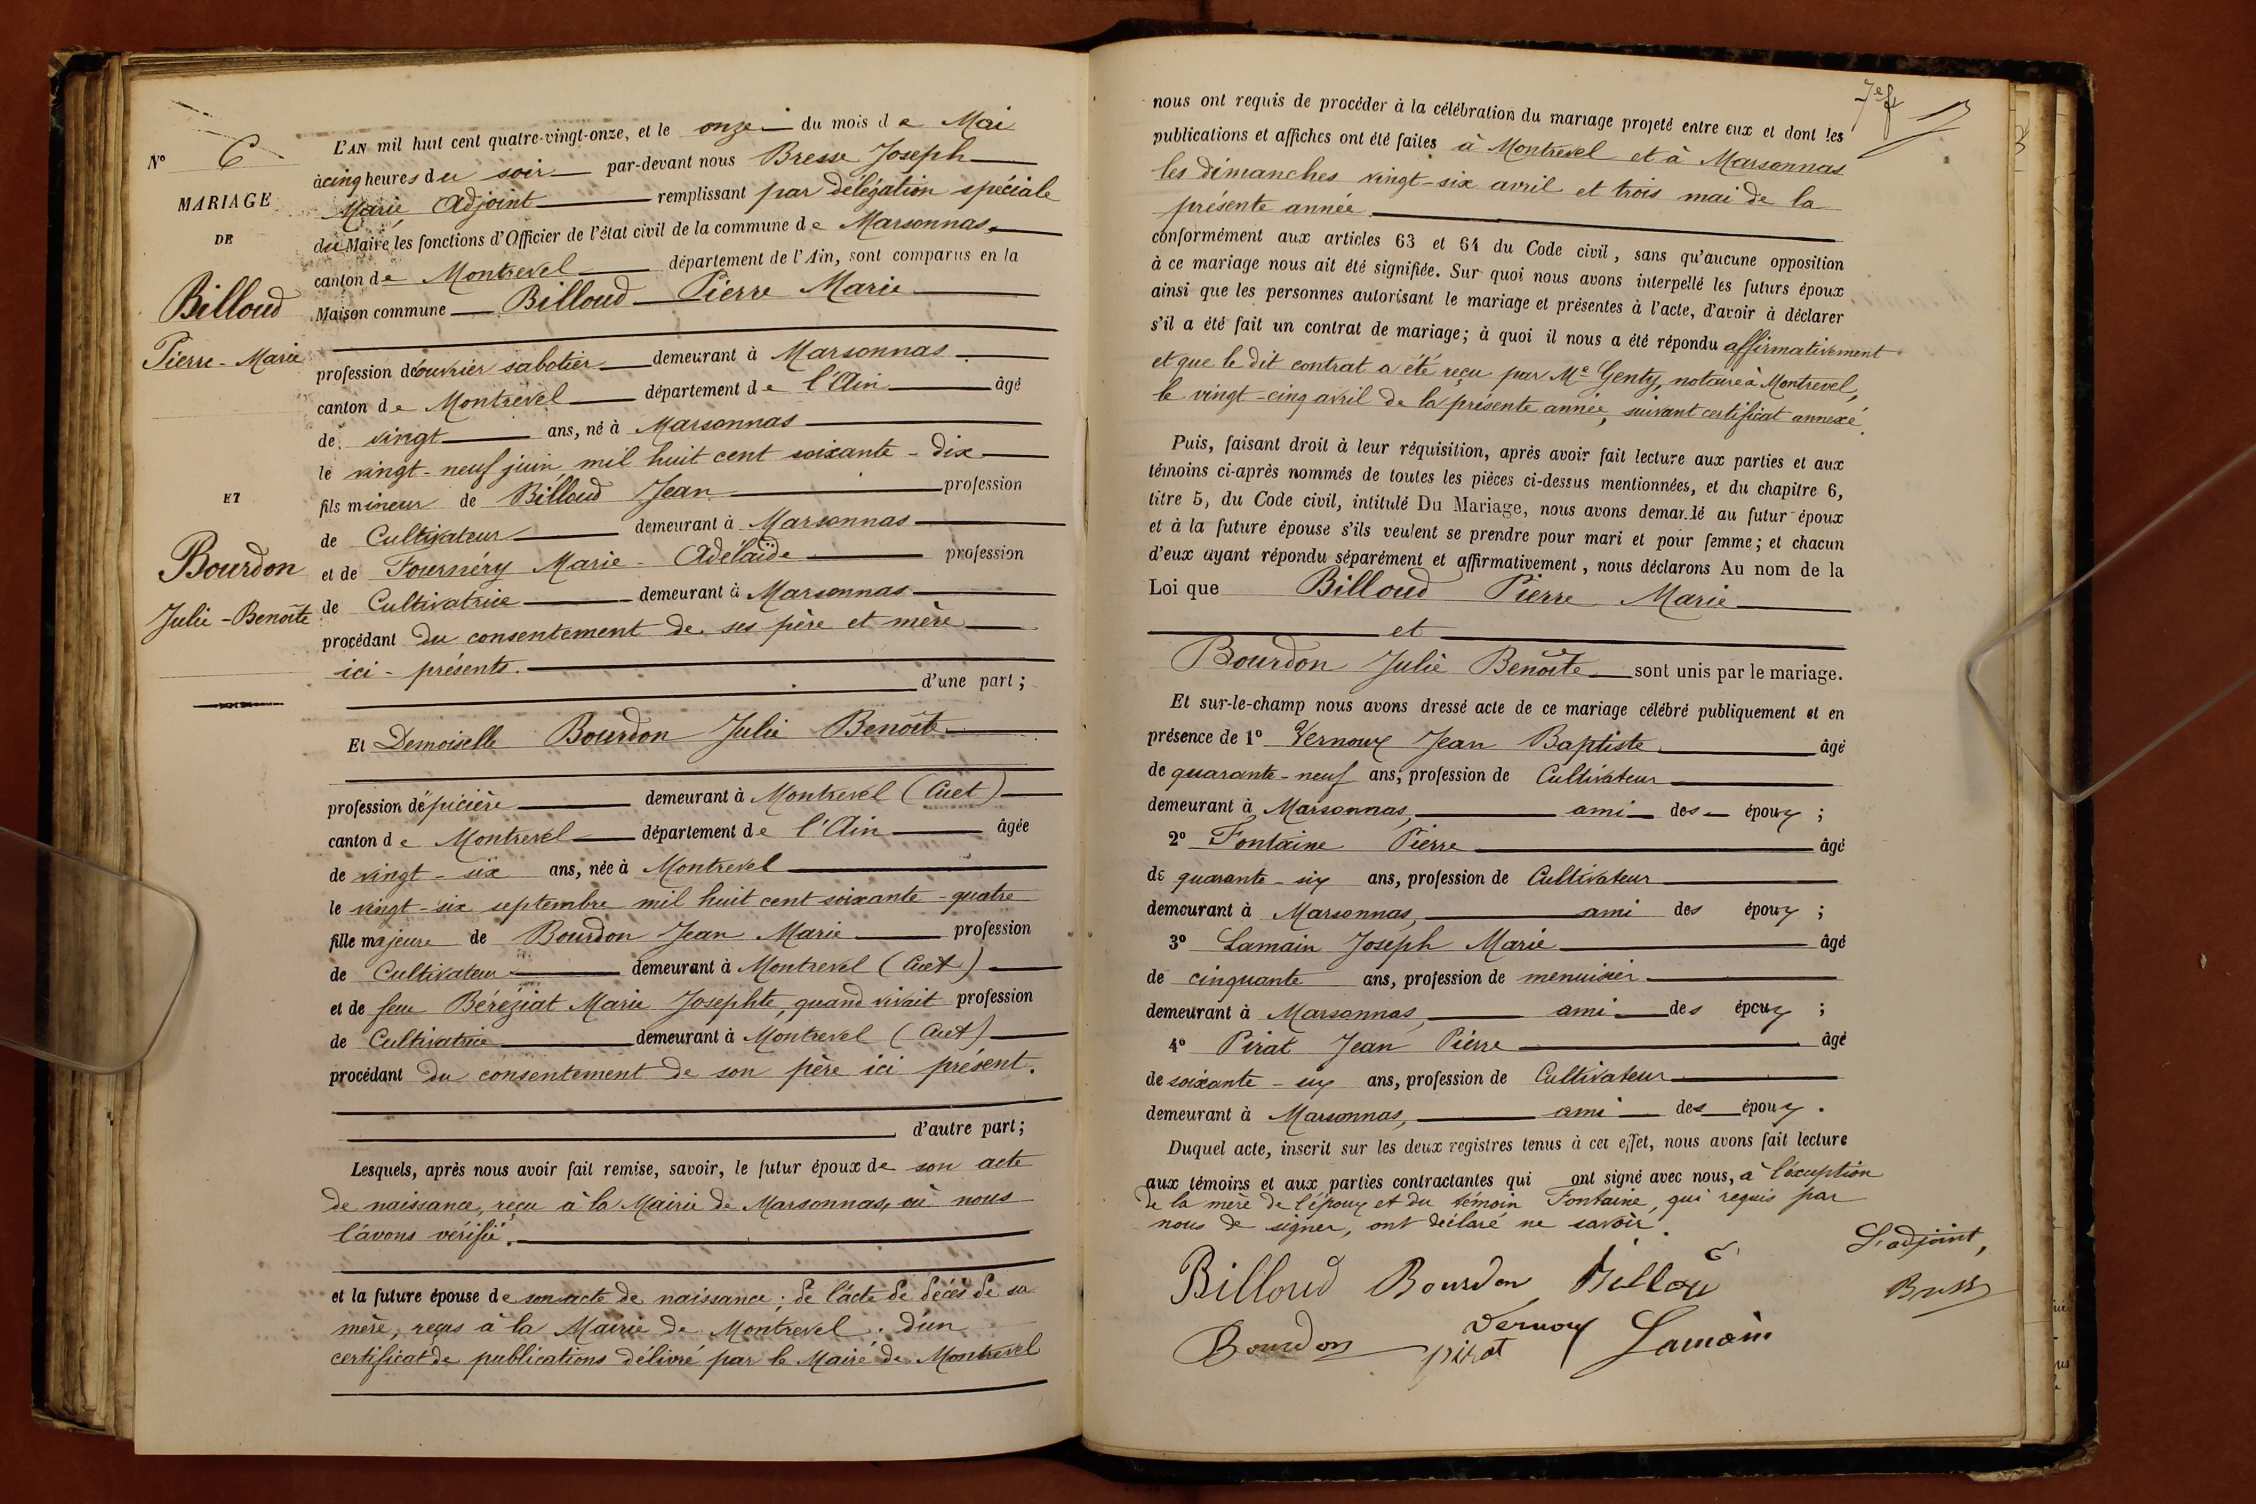 N° 6
MARIAGE
DE
Billoud
Pierre-Marie
ET
Bourdon
Julie-Benoîte
L'AN mil huit cent quatre-vingt-onze, et le onze du mois de Mai
à cinq heures du soir par-devant nous Bresse Joseph
Marie Adjoint remplissant par délégation spéciale
du Maire les fonctions d'Officier de l'état civil de la commune de Marsonnas,
canton de Montrevel département de l'Ain, sont comparus en la
Maison commune Billoud Pierre Marie
profession d'ouvrier sabotier demeurant à Marsonnas
canton de Montrevel département de l'Ain âgé
de vingt ans, né à Marsonnas
le vingt-neuf juin mil huit cent soixante-dix
fils mineur de Billoud Jean profession
de Cultivateur demeurant à Marsonnas
et de Fournéry Marie-Adélaïde profession
de Cultivatrice demeurant à Marsonnas
procédant du consentement de ses père et mère
ici-présents.
d'une part;
Et Demoiselle Bourdon Julie Benoîte
profession d'épicière demeurant à Montrevel (Cuet)
canton de Montrevel département de l'Ain âgée
de vingt-six ans, née à Montrevel
le vingt-six septembre mil huit cent soixante-quatre
fille majeure de Bourdon Jean Marie profession
de Cultivateur demeurant à Montrevel (Cuet)
et de feue Béréziat Marie Josephte, quand vivait profession
de Cultivatrice demeurant à Montrevel (Cuet)
procédant du consentement de son père ici présent.
d'autre part;
Lesquels, après nous avoir fait remise, savoir, le futur époux de son acte
de naissance, reçu à la Mairie de Marsonnas, où nous
l'avons vérifié.
et la future épouse de son acte de naissance; de l'acte de décès de sa
mère, reçus à la Mairie de Montrevel; d'un
certificat de publications délivré par le Maire de Montrevel
nous ont requis de procéder à la célébration du mariage projeté entre eux et dont les
publications et affiches ont été faites à Montrevel et à Marsonnas
les dimanches vingt-six avril et trois mai de la
présente année.
conformément aux articles 63 et 64 du Code civil, sans qu'aucune opposition
à ce mariage nous ait été signifiée. Sur quoi nous avons interpellé les futurs époux
ainsi que les personnes autorisant le mariage et présentes à l'acte, d'avoir à déclarer
s'il a été fait un contrat de mariage; à quoi il nous a été répondu affirmativement
et que le dit contrat a été reçu par Me Genty, notaire à Montrevel,
le vingt-cinq avril de la présente année, suivant certificat annexé.
Puis, faisant droit à leur réquisition, après avoir fait lecture aux parties et aux
témoins ci-après nommés de toutes les pièces ci-dessus mentionnées, et du chapitre 6,
titre 5, du Code civil, intitulé Du Mariage, nous avons demandé au futur époux
et à la future épouse s'ils veulent se prendre pour mari et pour femme; et chacun
d'eux ayant répondu séparément et affirmativement, nous déclarons Au nom de la
Loi que Billoud Pierre Marie
et
Bourdon Julie Benoîte sont unis par le mariage.
Et sur-le-champ nous avons dressé acte de ce mariage célébré publiquement et en
présence de 1° Vernoux Jean Baptiste âgé
de quarante-neuf ans, profession de Cultivateur
demeurant à Marsonnas, ami des époux;
2° Fontaine Pierre âgé
de quarante-six ans, profession de Cultivateur
demeurant à Marsonnas, ami des époux;
3° Lamain Joseph Marie âgé
de cinquante ans, profession de menuisier
demeurant à Marsonnas, ami des époux;
4° Pirat Jean Pierre âgé
de soixante-six ans, profession de Cultivateur
demeurant à Marsonnas, ami des époux.
Duquel acte, inscrit sur les deux registres tenus à cet effet, nous avons fait lecture
aux témoins et aux parties contractantes qui ont signé avec nous, à l'exception
de la mère de l'époux et du témoin Fontaine, qui requis par
nous de signer, ont déclaré ne savoir.
L'adjoint,
Billoud Bourdon Billoud
Bresse
Bourdon Vernoux Lamain
Pirat